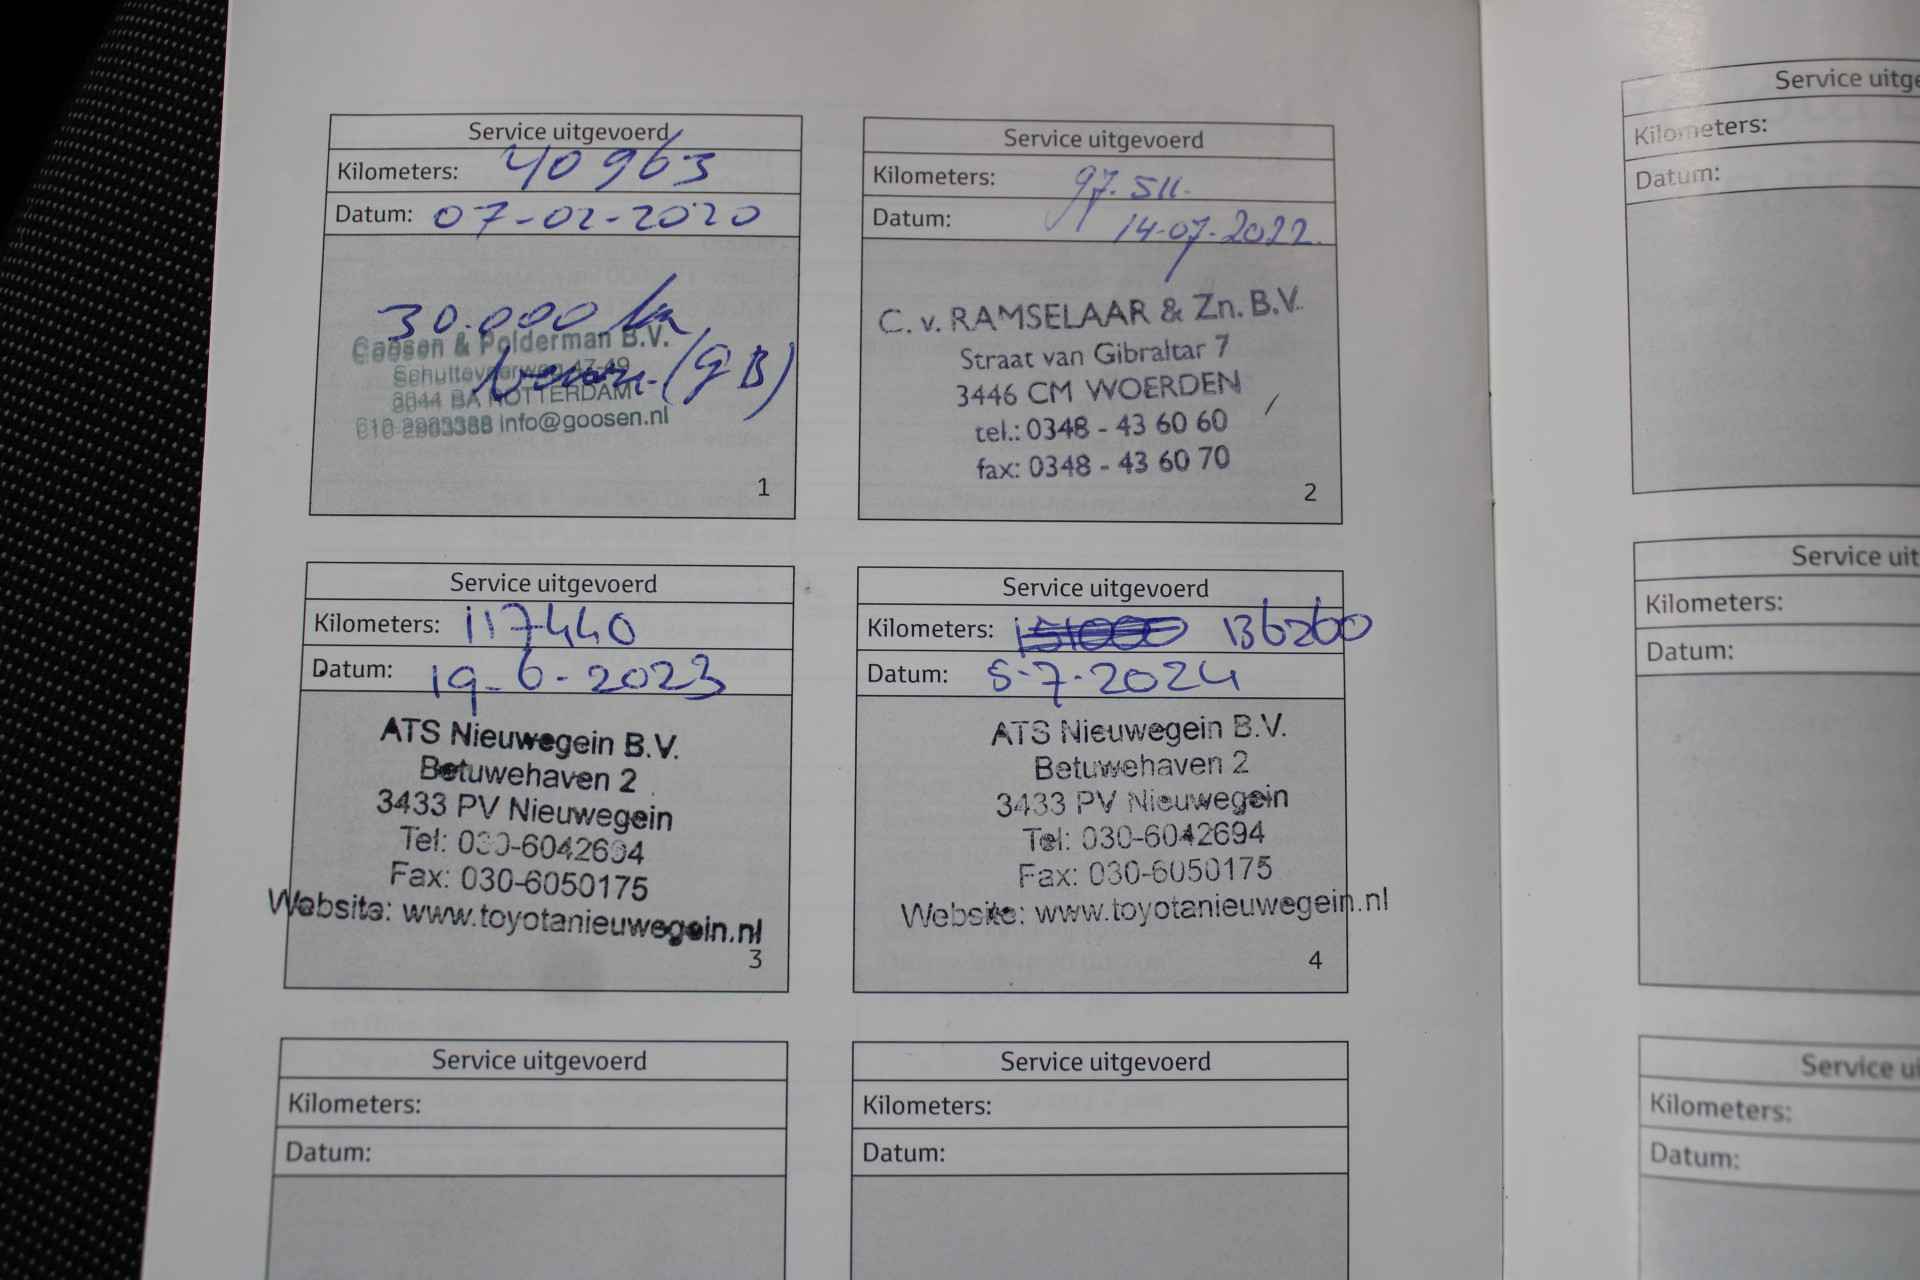 Service uitgevoerd
Kilometers: 40963
Datum: 07-02-2020
30.000 km
Goosen & Polderman B.V.
47-49
BA ROTTERDAM
(gB)
info@goosen.nl
1
Service uitgevoerd
Kilometers: 97.511.
Datum: 14-07-2022.
C. v. RAMSELAAR & Zn. B.V.
Straat van Gibraltar 7
3446 CM WOERDEN
tel.: 0348 - 43 60 60
fax: 0348 - 43 60 70
2
Service uitgevoerd
Kilometers: 117440
Datum: 19-6-2023
ATS Nieuwegein B.V.
Betuwehaven 2
3433 PV Nieuwegein
Tel: 030-6042694
Fax: 030-6050175
Website: www.toyotanieuwegein.nl
3
Service uitgevoerd
Kilometers: 136260
Datum: 5-7-2024
ATS Nieuwegein B.V.
Betuwehaven 2
3433 PV Nieuwegein
Tel: 030-6042694
Fax: 030-6050175
Website: www.toyotanieuwegein.nl
4
Service uitgevoerd
Kilometers:
Datum:
Service uitgevoerd
Kilometers:
Datum:
Service uitge
Kilometers:
Datum:
Service uit
Kilometers:
Datum:
Service ui
Kilometers:
Datum: